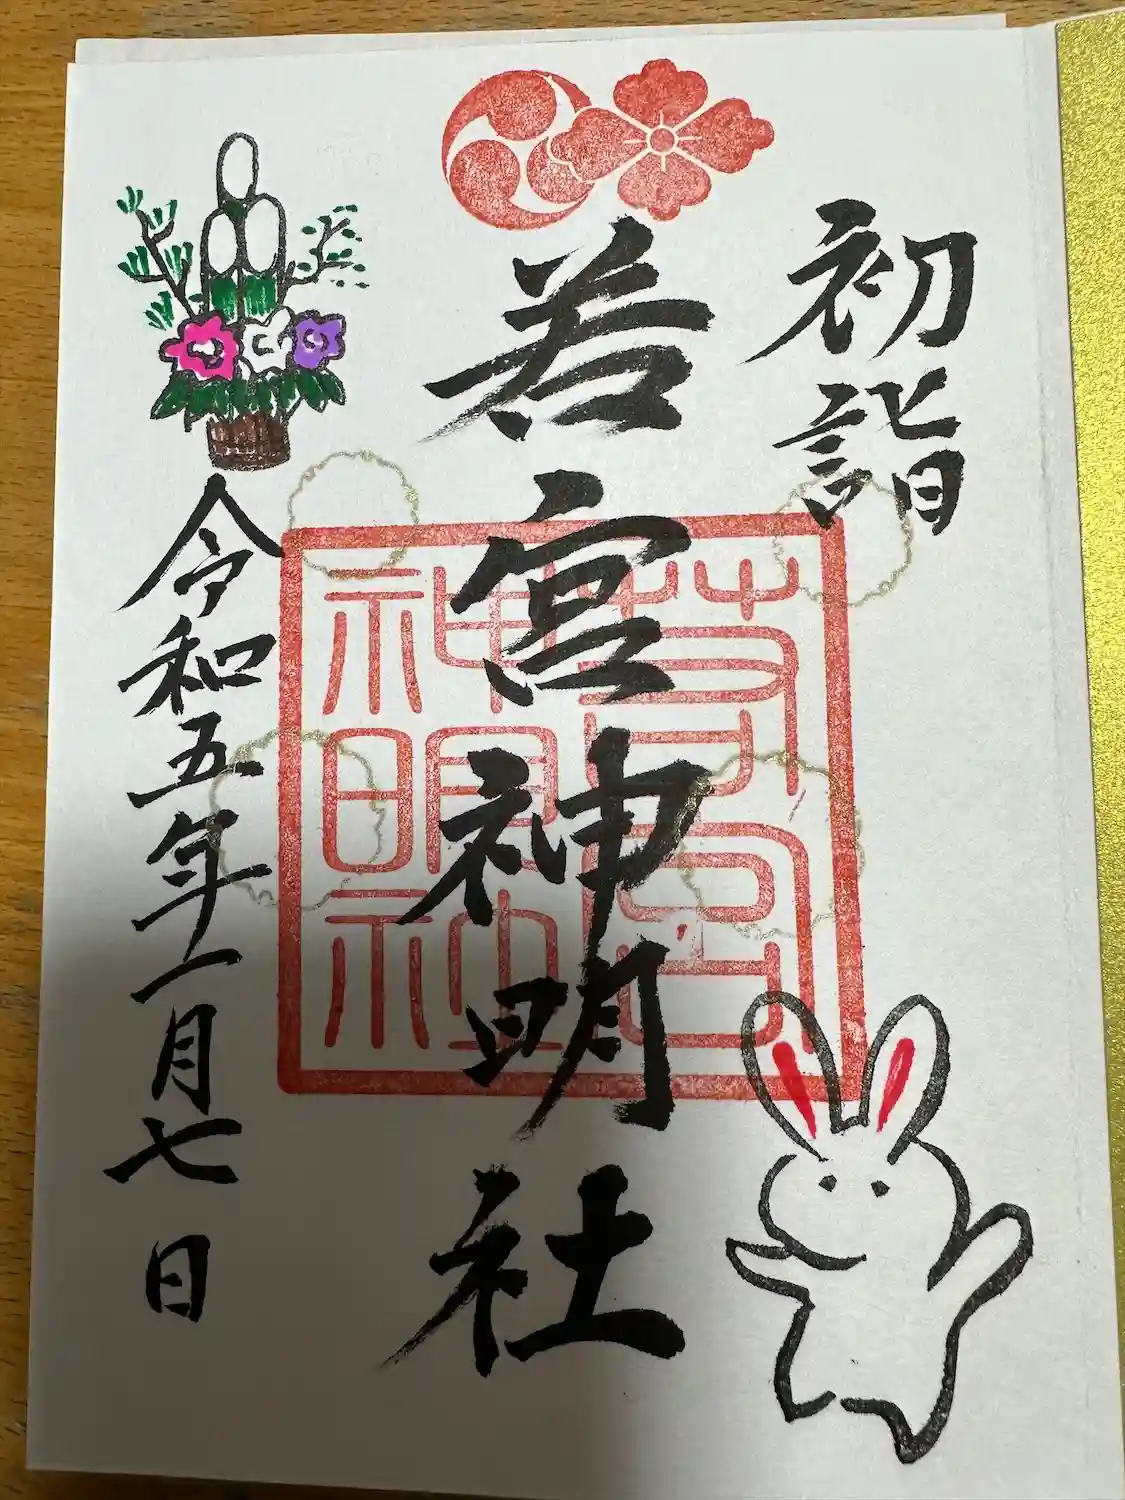 初詣
若宮神明社
若宮
神明社
令和五年一月七日